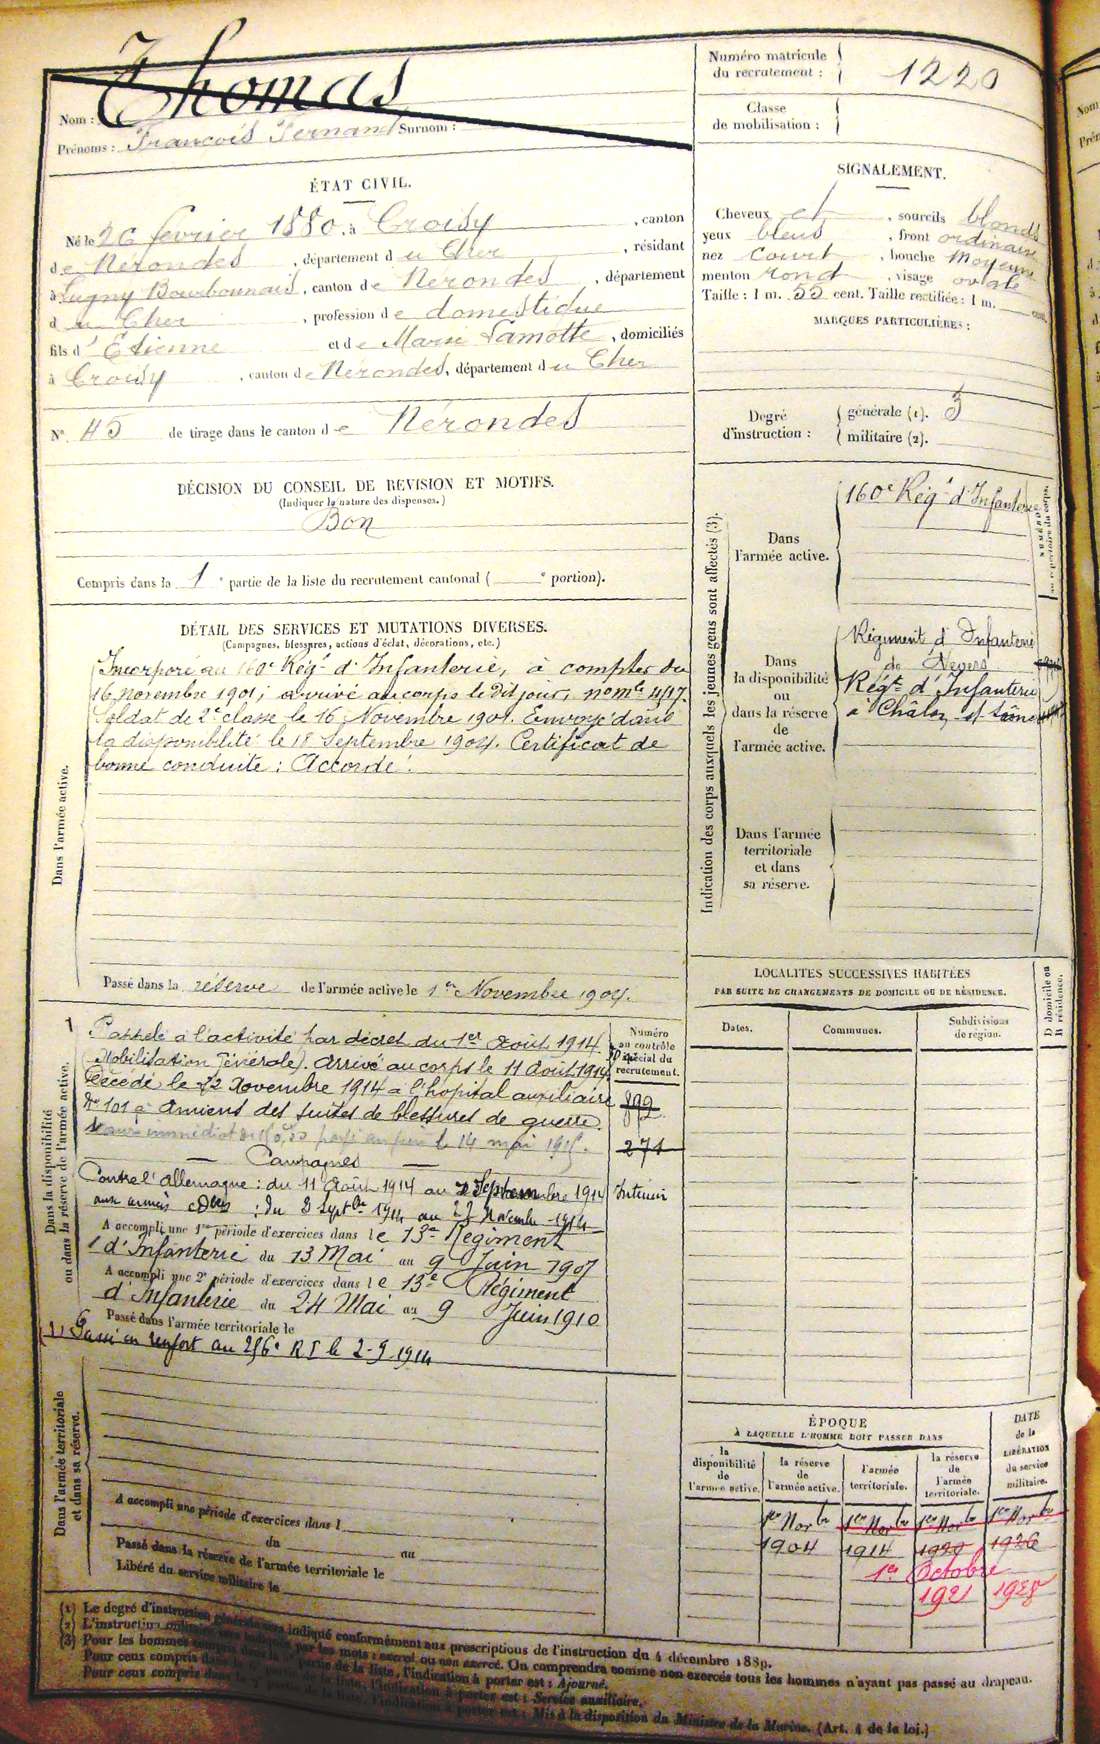 Thomas
Nom :
Prénoms : François Fernand Surnom :
Numéro matricule
du recrutement :
1220
Classe
de mobilisation :
ÉTAT CIVIL.
Né le 26 février 1880, à Croisy, canton
de Nérondes, département du Cher, résidant
à Lugny Bourbonnais, canton de Nérondes, département
du Cher, profession de domestique
fils d'Etienne et de Marie Lamotte, domiciliés
à Croisy, canton de Nérondes, département du Cher
N° 45 de tirage dans le canton de Nérondes
SIGNALEMENT.
Cheveux et, sourcils blonds
yeux bleus, front ordinaire
nez court, bouche moyenne
menton rond, visage ovale
Taille : 1 m. 55 cent. Taille rectifiée : 1 m. cent.
MARQUES PARTICULIÈRES :
Degré
d'instruction :
générale (1). 3
militaire (2).
DÉCISION DU CONSEIL DE REVISION ET MOTIFS.
(Indiquer la nature des dispenses.)
Bon
Compris dans la 1e partie de la liste du recrutement cantonal ( e portion).
DÉTAIL DES SERVICES ET MUTATIONS DIVERSES.
(Campagnes, blessures, actions d'éclat, décorations, etc.)
Dans l'armée active.
Incorporé au 160e Régt d'Infanterie, à compter du
16 novembre 1901; arrivé au corps le dit jour, no mle 4517.
Soldat de 2e classe le 16 Novembre 1901. Envoyé dans
la disponibilité le 18 Septembre 1904. Certificat de
bonne conduite : Accordé.
Passé dans la réserve de l'armée active le 1er Novembre 1904.
Indication des corps auxquels les jeunes gens sont affectés (3).
NUMÉROS
au répertoire du corps.
Dans
l'armée active.
160e Régt d'Infanterie
Dans
la disponibilité
ou
dans la réserve
de
l'armée active.
Régiment d'Infanterie
de Nevers
Régt d'Infanterie
à Châlon s/ Saône
Dans l'armée
territoriale
et dans
sa réserve.
Dans la disponibilité
ou dans la réserve de l'armée active.
Rappelé à l'activité par décret du 1er Août 1914.
(Mobilisation Générale). Arrivé au corps le 11 Août 1914
Décédé le 22 Novembre 1914 à l'hôpital auxiliaire
No 101 à Amiens des suites de blessures de guerre.
le 14 mai 1915.
Campagnes
Contre l'Allemagne : du 11 Août 1914 au 2 Septembre 1914 Intérieur
aux armées : du 3 Septbre 1914 au 22 Novembre 1914
A accompli une 1re période d'exercices dans le 13e Régiment
d'Infanterie du 13 Mai au 9 Juin 1907
A accompli une 2e période d'exercices dans le 13e Régiment
d'Infanterie du 24 Mai au 9 Juin 1910
Passé dans l'armée territoriale le
(1) Passé en renfort au 256e RI le 2-9-1914
Numéro
au contrôle
spécial du
recrutement.
892
271
LOCALITÉS SUCCESSIVES HABITÉES
PAR SUITE DE CHANGEMENTS DE DOMICILE OU DE RÉSIDENCE.
Dates.
Communes.
Subdivisions
de région.
D domicile ou
R résidence.
Dans l'armée territoriale
et dans sa réserve.
A accompli une période d'exercices dans l
du au
Passé dans la réserve de l'armée territoriale le
Libéré du service militaire le
ÉPOQUE
À LAQUELLE L'HOMME DOIT PASSER DANS
la
disponibilité
de
l'armée active.
la réserve
de
l'armée active.
l'armée
territoriale.
la réserve
de
l'armée
territoriale.
DATE
de la
LIBÉRATION
du service
militaire.
1er Novbre 1er Novbre 1er Novbre 1er Novbre
1904 1914 1920 1926
1er Octobre
1921 1928
(1) Le degré d'instruction générale sera indiqué conformément aux prescriptions de l'instruction du 4 décembre 1889.
(2) L'instruction militaire sera indiquée par les mots : exercé ou non exercé. On comprendra comme non exercés tous les hommes n'ayant pas passé au drapeau.
(3) Pour les hommes compris dans la partie de la liste, l'indication à porter est : Ajourné.
Pour ceux compris dans la partie de la liste, l'indication à porter est : Service auxiliaire.
Pour ceux compris dans la partie de la liste, l'indication à porter est : Mis à la disposition du Ministre de la Marine. (Art. 4 de la loi.)